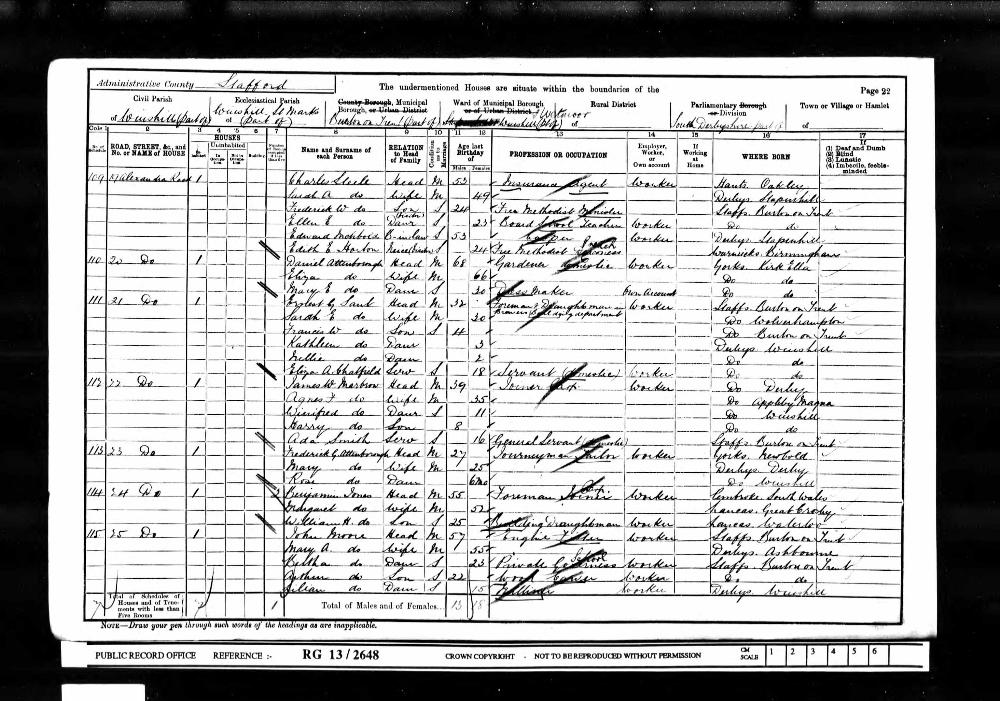 Administrative County Stafford
The undermentioned Houses are situate within the boundaries of the
Page 22
Civil Parish
of Winshill (part of)
Ecclesiastical Parish
of Winshill St Marks (part of)
County Borough, Municipal Borough, or Urban District
Burton on Trent (part of)
Ward of Municipal Borough or of Urban District
Winshill (pt of)
Rural District
of
Parliamentary Borough or Division
South Derbyshire part of
Town or Village or Hamlet
of
Cols 1 2 3 4 5 6 7 8 9 10 11 12 13 14 15 16 17
No. of Schedule
ROAD, STREET, &c., and No. or NAME of HOUSE
HOUSES
Inhabited
Uninhabited
In Occupation
Not in Occupation
Building
Name and Surname of each Person
RELATION to Head of Family
Condition as to Marriage
Age last Birthday of
Males Females
PROFESSION OR OCCUPATION
Employer, Worker, or Own account
If Working at Home
WHERE BORN
If
(1) Deaf and Dumb
(2) Blind
(3) Lunatic
(4) Imbecile, feeble-minded
109 19 Alexandra Road 1 Charles Steele Head M 53 Insurance Agent Worker Hants. Oakley
Sarah A do Wife M 49 Derbys Stapenhill
Frederick W do Son S 24 Free Methodist Minister Staffs. Burton on Trent
Ellen E do Daur S 23 Board School Teacher Worker Do do
Edward B-in-law S 53 Cooper Worker Derbys Stapenhill
Edith E. Horton Niece S 24 Free Methodist Warwicks Birmingham
110 20 Do 1 Daniel Attenborough Head M 68 Gardener domestic Worker Yorks. Kirk Ella
Eliza do Wife M 66 Do do
Mary E do Daur S 30 Dress Maker Own Account Do do
111 21 Do 1 Ernest G Sault Head M 32 Foreman Draughtsman Brewers Building department Worker Staffs Burton on Trent
Sarah E do Wife M 30 Do Wolverhampton
Francis W do Son S 4 Do Burton on Trent
Kathleen do Daur 3 Derbys Winshill
Nellie do Daur 2 Do do
Eliza A Chatfield Serv S 18 Servant (domestic) Worker Do do
112 22 Do 1 James W Marbrow Head M 39 Joiner Worker Do Derby
Agnes do Wife M 35 Do Appleby Magna
Winifred do Daur S 11 Do Winshill
Harry do Son 8 Do do
Ada Smith Serv S 16 General Servant (domestic) Staffs. Burton on Trent
113 23 Do 1 Frederick G Attenborough Head M 27 Journeyman Tailor Worker Yorks. Newbold
Mary do Wife M 25 Derbys. Derby
Rose do Daur 6mo Do Winshill
114 24 Do 1 Benjamin Jones Head M 55 Foreman Joiner Worker Pembroke South Wales
Margaret do Wife M 52 Lancas. Great Crosby
William H. do Son S 25 Building Draughtsman Worker Lancas. Waterloo
115 25 Do 1 John Moore Head M 57 Engine Worker Staffs Burton on Trent
Mary A. do Wife M 55 Derbys. Ashbourne
Bertha do Daur S 23 Private School Governess Worker Staffs Burton on Trent
Arthur do Son S 22 Wood Worker Do do
Lilian do Daur S 15 Milliner Worker Derbys. Winshill
7 Total of Schedules of Houses and of Tenements with less than Five Rooms 7 1 Total of Males and of Females... 13 18
NOTE—Draw your pen through such words of the headings as are inapplicable.
PUBLIC RECORD OFFICE REFERENCE :- RG 13/2648 CROWN COPYRIGHT - NOT TO BE REPRODUCED WITHOUT PERMISSION CM SCALE 1 2 3 4 5 6